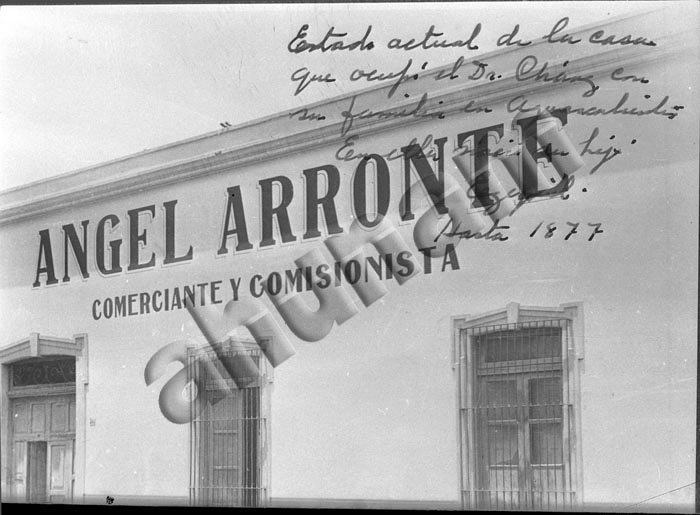 Estado actual de la casa
que ocupó el Dr. Cháng con
su familia en Aguascalientes
En ella nació su hijo
Ezequiel.
Hasta 1877
ANGEL ARRONTE
COMERCIANTE Y COMISIONISTA
ahunam